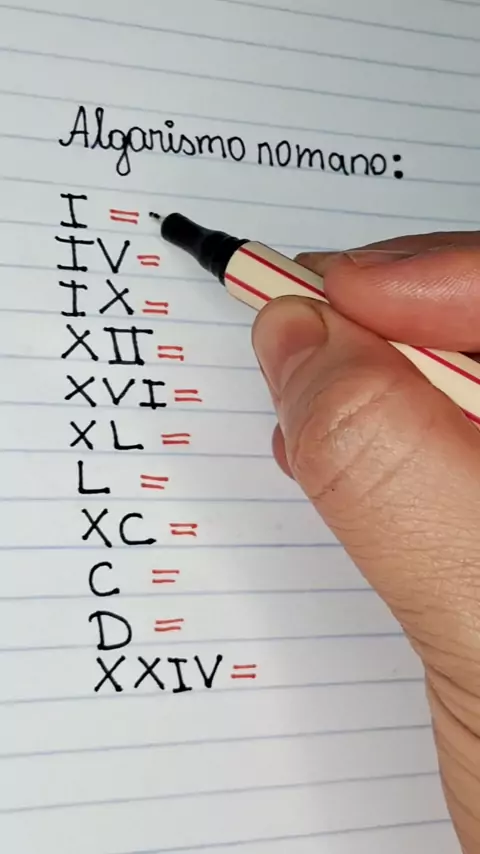 Algarismo romano:
I =
IV =
IX =
XII =
XVI =
XL =
L =
XC =
C =
D =
XXIV =